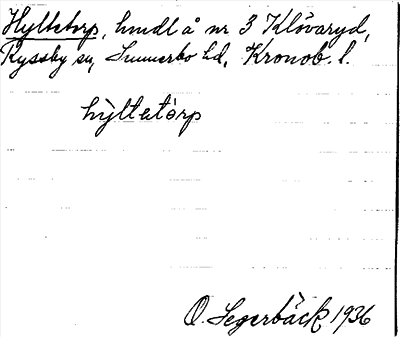 Hyltetorp, hmdl å nr 3 Klövaryd,
Ryssby sn, Sunnerbo hd, Kronob. l.
hỳltetòrp
O. Segerbäck 1936